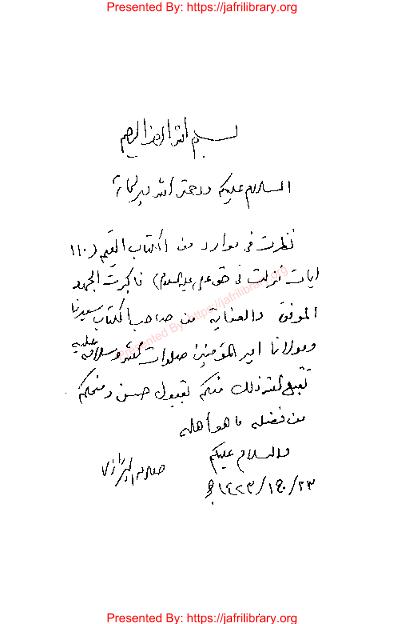 Presented By: https://jafrilibrary.org
بسم الله الرحمن الرحيم
السلام عليكم ورحمة الله وبركاته
نظرت في موارد من الكتاب القيم (١١٠
آيات نزلت في حق علي عليه السلام) فأكبرت الجهد
الموفق والعناية من صاحب الكتاب سيدنا
ومولانا أمير المؤمنين صلوات الله وسلامه عليه
تقبل الله ذلك منكم بقبول حسن ومنحكم
من فضله ما هو أهله
والسلام عليكم
Presented By: https://jafrilibrary.org
Presented By: https://jafrilibrary.org